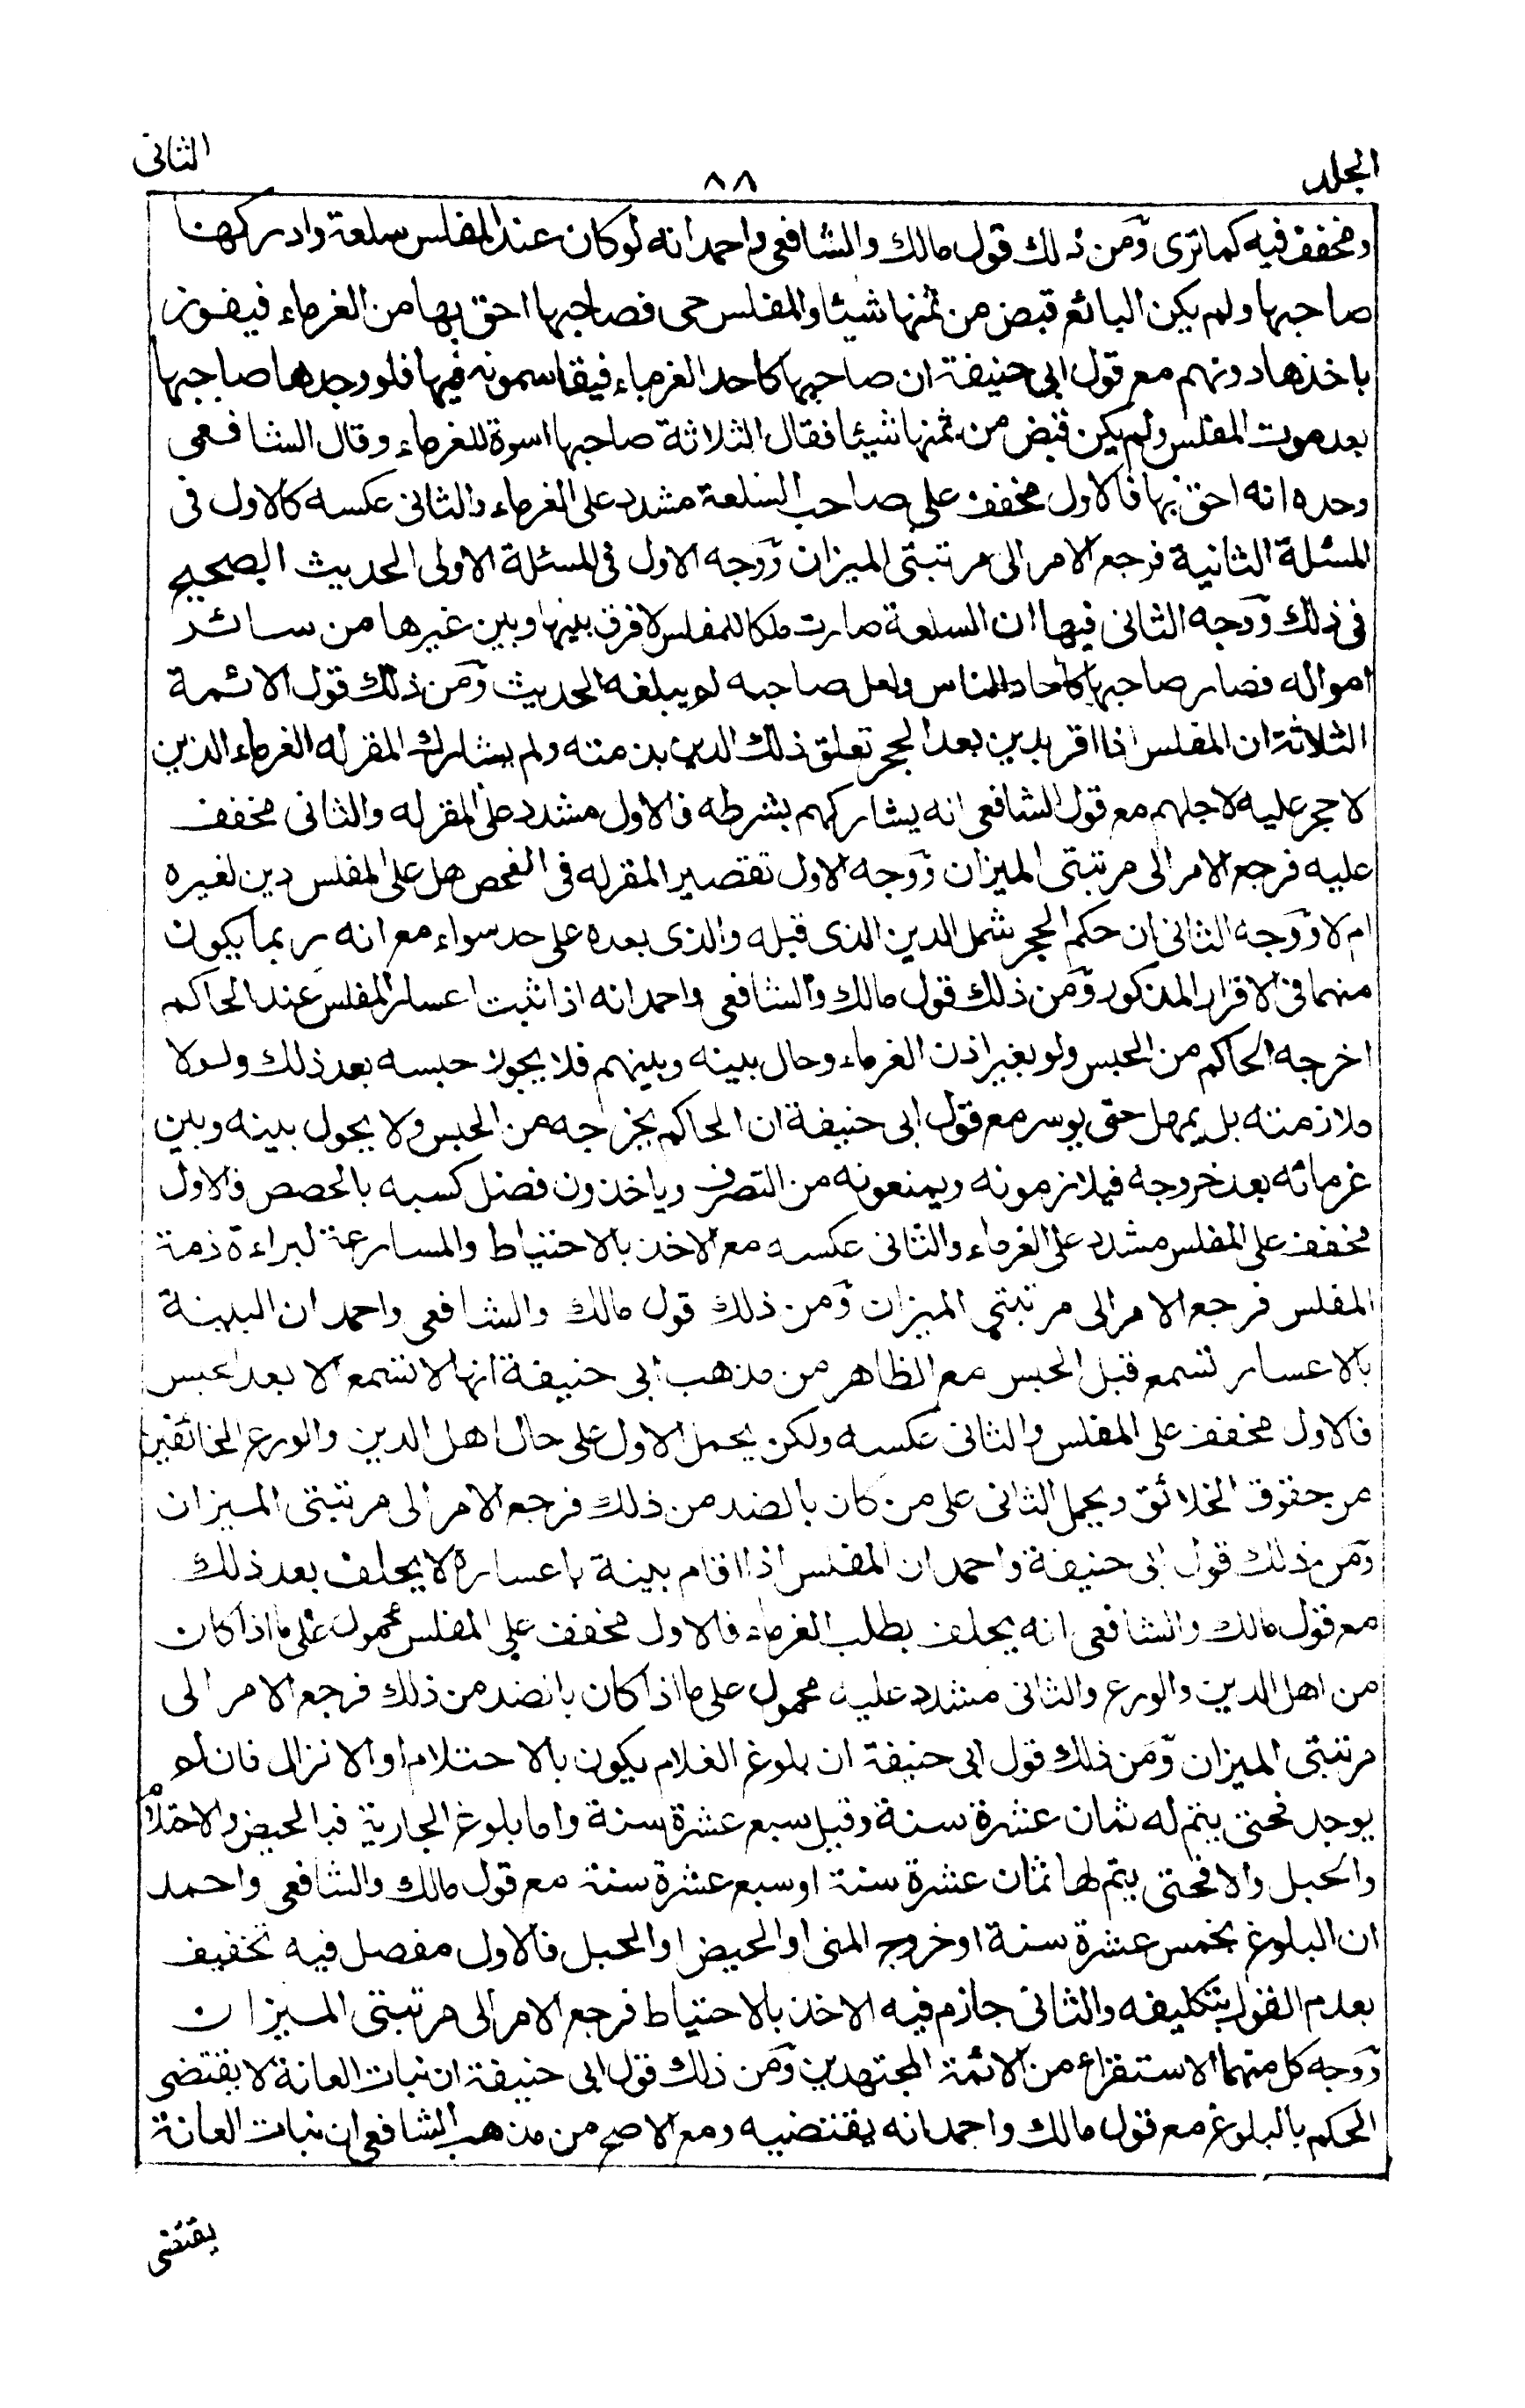 المجلد
٨٨
الثانى
ومخفف فيه كما ترى ومن ذلك قول مالك والشافعى واحمد انه لو كان عند المفلس سلعة وادركها
صاحبها ولم يكن البائع قبض من ثمنها شيئا والمفلس حى فصاحبها احق بها من الغرماء فيفوز
باخذها دونهم مع قول ابى حنيفة ان صاحبها كاحد الغرماء فيقاسمونه فيها فلو وجدها صاحبها
بعد موت المفلس ولم يكن قبض من ثمنها شيئا فقال الثلاثة صاحبها اسوة للغرماء وقال الشافعى
وحده انه احق بها فالاول مخفف على صاحب السلعة مشدد على الغرماء والثانى عكسه كالاول فى
المسئلة الثانية فرجع الامر الى مرتبتى الميزان ووجه الاول فى المسئلة الاولى الحديث الصحيح
فى ذلك ووجه الثانى فيها ان السلعة صارت ملكا للمفلس لا فرق بينها وبين غيرها من سائر
امواله فصار صاحبها كآحاد الناس ولعل صاحبه لم يبلغه الحديث ومن ذلك قول الائمة
الثلاثة ان المفلس اذا اقر بدين بعد الحجر تعلق ذلك الدين بذمته ولم يشارك المقر له الغرماء الذين
لا حجر عليه لاجلهم مع قول الشافعى انه يشاركهم بشرطه فالاول مشدد على المقر له والثانى مخفف
عليه فرجع الامر الى مرتبتى الميزان ووجه الاول تقصير المقر له فى الفحص هل على المفلس دين لغيره
ام لا ووجه الثانى ان حكم الحجر شمل الدين الذى قبله والذى بعده على حد سواء مع انه ربما يكون
منهما فى الاقرار المذكور ومن ذلك قول مالك والشافعى واحمد انه اذا ثبت اعسار المفلس عند الحاكم
اخرجه الحاكم من الحبس ولو بغير اذن الغرماء وحال بينه وبينهم فلا يجوز حبسه بعد ذلك ولا
ملازمته بل يمهل حتى يوسر مع قول ابى حنيفة ان الحاكم يخرجه من الحبس ولا يحول بينه وبين
غرمائه بعد خروجه فيلازمونه ويمنعونه من التصرف وياخذون فضل كسبه بالحصص فالاول
مخفف على المفلس مشدد على الغرماء والثانى عكسه مع الاخذ بالاحتياط والمسارعة لبراءة ذمة
المفلس فرجع الامر الى مرتبتى الميزان ومن ذلك قول مالك والشافعى واحمد ان البينة
بالاعسار تسمع قبل الحبس مع الظاهر من مذهب ابى حنيفة انها لا تسمع الا بعد الحبس
فالاول مخفف على المفلس والثانى عكسه ولكن يحمل الاول على حال اهل الدين والورع الخائفين
من حقوق الخلائق ويحمل الثانى على من كان بالضد من ذلك فرجع الامر الى مرتبتى الميزان
ومن ذلك قول ابى حنيفة واحمد ان المفلس اذا اقام بينة باعساره لا يحلف بعد ذلك
مع قول مالك والشافعى انه يحلف بطلب الغرماء فالاول مخفف على المفلس محمول على ما اذا كان
من اهل الدين والورع والثانى مشدد عليه محمول على ما اذا كان بالضد من ذلك فرجع الامر الى
مرتبتى الميزان ومن ذلك قول ابى حنيفة ان بلوغ الغلام يكون بالاحتلام او الانزال فان لم
يوجد فحتى يتم له ثمان عشرة سنة وقيل سبع عشرة سنة واما بلوغ الجارية فبالحيض والاحتلام
والحبل والا فحتى يتم لها ثمان عشرة سنة او سبع عشرة سنة مع قول مالك والشافعى واحمد
ان البلوغ بخمس عشرة سنة او خروج المنى او الحيض او الحبل فالاول مفصل فيه تخفيف
بعدم القول بتكليفه والثانى جازم فيه الاخذ بالاحتياط فرجع الامر الى مرتبتى الميزان
ووجه كل منهما الاستقراع من الائمة المجتهدين ومن ذلك قول ابى حنيفة ان نبات العانة لا يقتضى
الحكم بالبلوغ مع قول مالك واحمد انه يقتضيه ومع الاصح من مذهب الشافعى ان نبات العانة
يقتضى